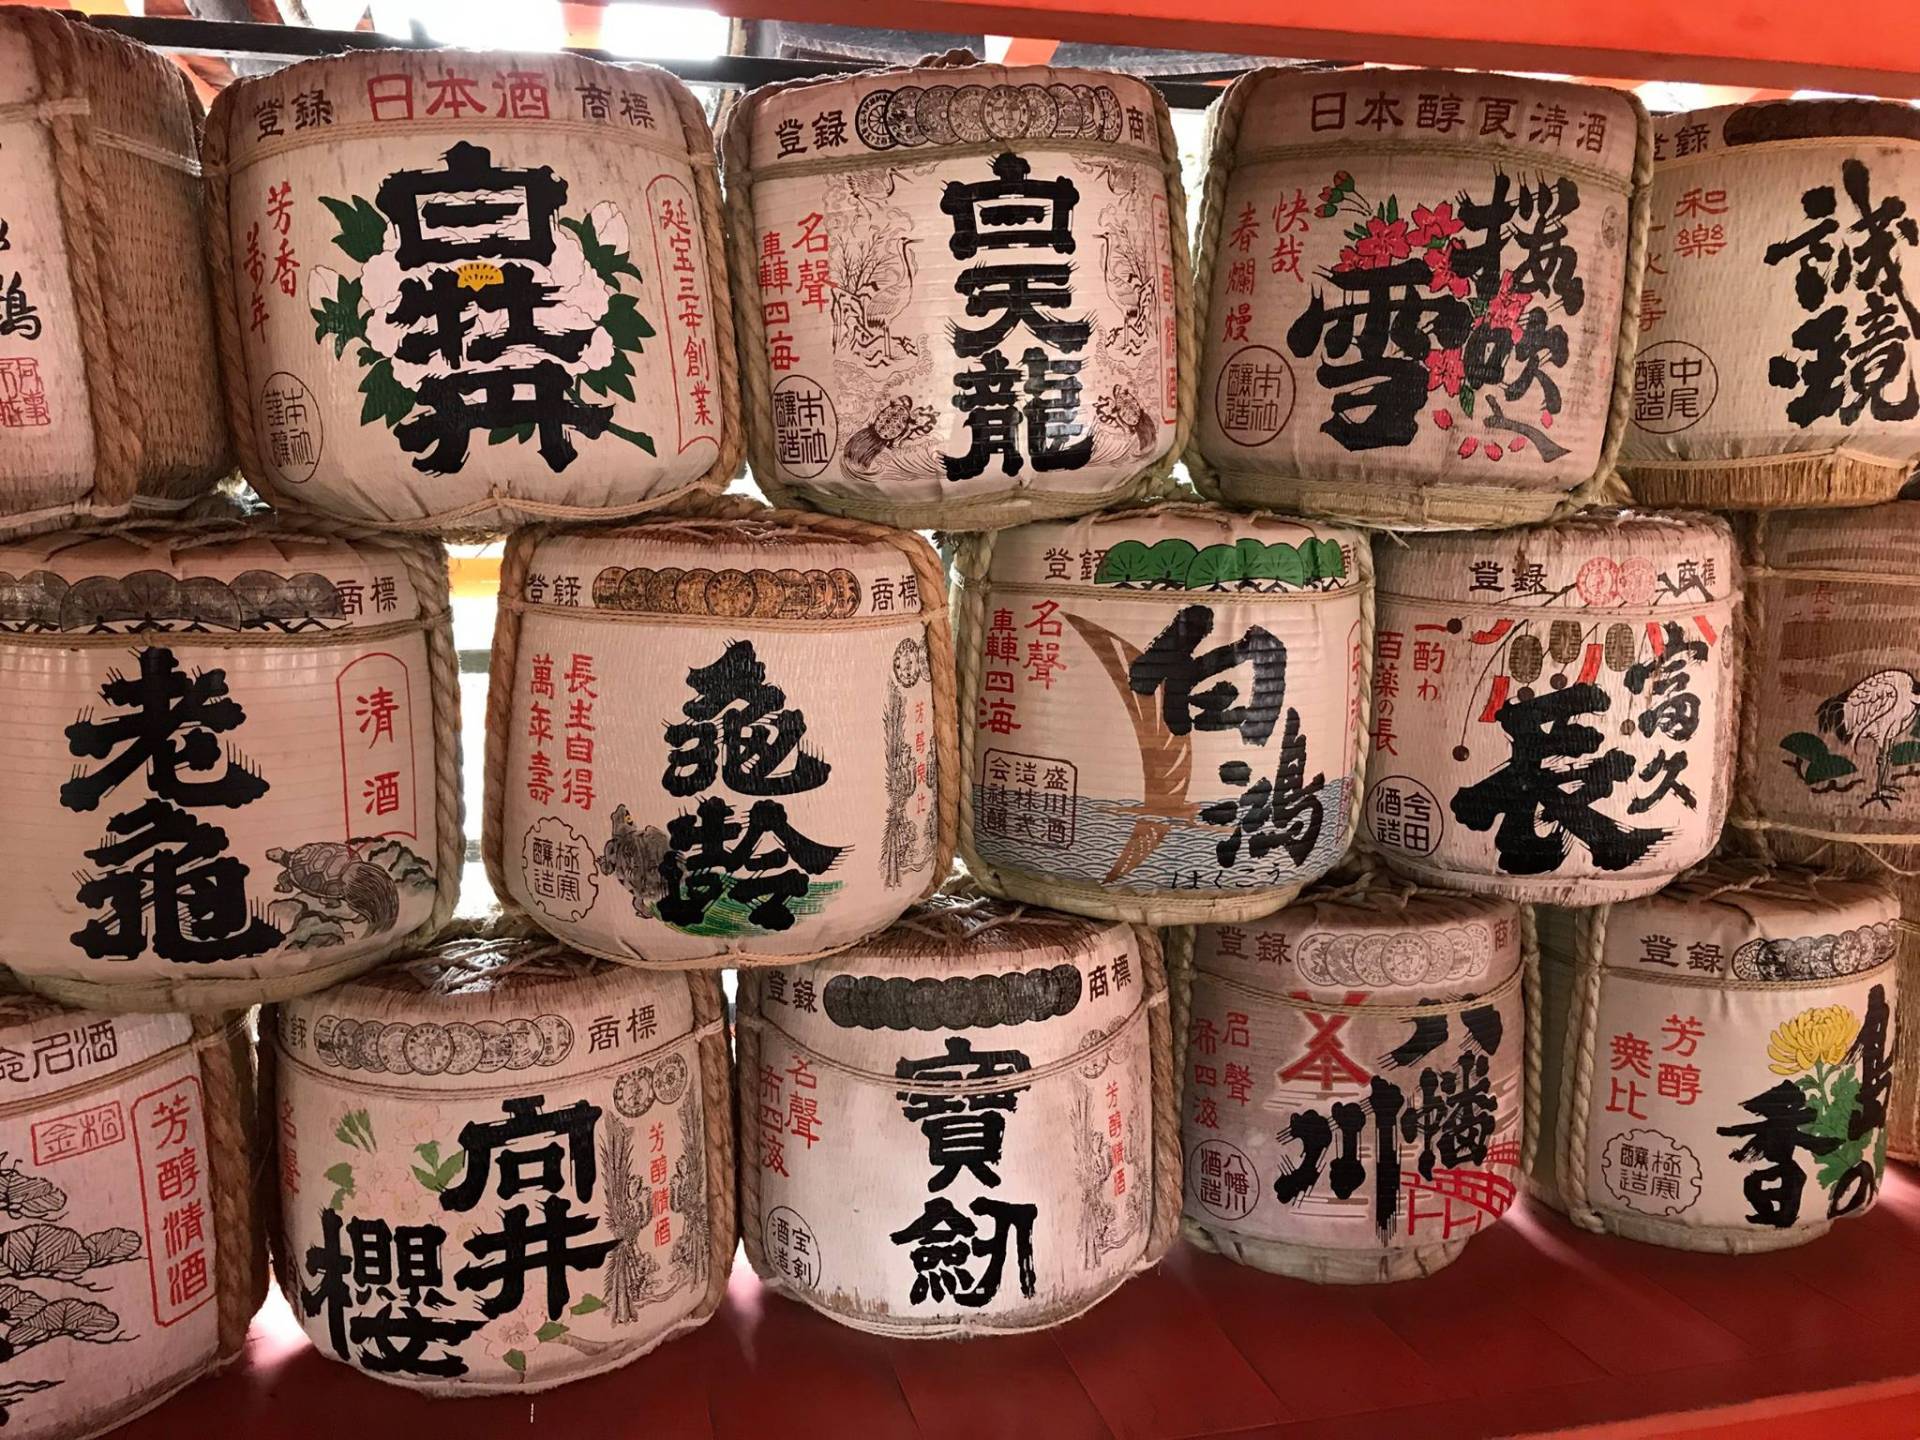 登録 日本酒 商標
芳香
萬年
白牡丹
延宝三年創業
本社
謹醸
登録 商
名聲
轟四海
白天龍
本社
醸造
日本醇良清酒
快哉
春爛熳
桜吹雪
本社
醸造
登録
和樂
誠鏡
中尾
醸造
商標
老亀
清酒
登録 商標
長生自得
萬年壽
亀齢
極寒
醸造
登録
名聲
轟四海
白鴻
盛川酒
造株式
会社醸
はくこう
登録 商標
一酌わ
百薬の長
富久長
今田
酒造
命名酒
松金
芳醇清酒
商標
向井櫻
芳醇清酒
登録 商標
名聲
布四海
寶剱
芳醇清酒
宝剣
酒造
登録 商
名聲
布四海
八幡川
八幡川
酒造
登録
芳醇
奥比
の香
極寒
醸造